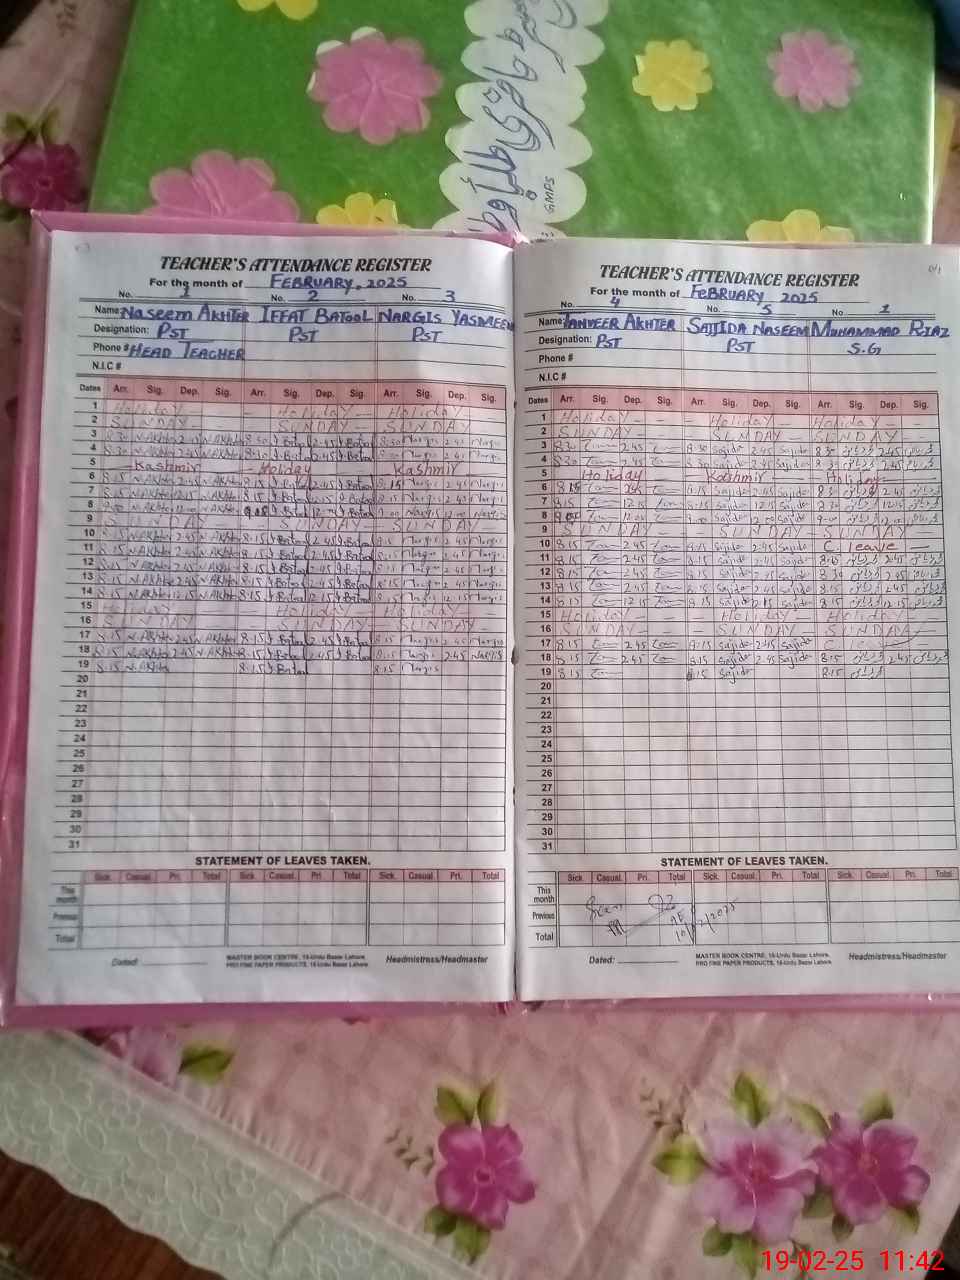 GMPS
TEACHER'S ATTENDANCE REGISTER
For the month of FEBRUARY, 2025
No. 1 No. 2 No. 3
Name: NASEEM AKHTER IFFAT BATOOL NARGIS YASMEEN
Designation: PST PST PST
Phone # HEAD TEACHER
N.I.C #
Dates Arr. Sig. Dep. Sig. Arr. Sig. Dep. Sig. Arr. Sig. Dep. Sig.
1 Holiday Holiday Holiday
2 SUNDAY SUNDAY SUNDAY
3 8:30 N.Akhter 2:45 N.Akhter 8:30 I.Batool 2:45 I.Batool 8:30 Nargis 2:45 Nargis
4 8:30 N.Akhter 2:45 N.Akhter 8:30 I.Batool 2:45 I.Batool 8:30 Nargis 2:45 Nargis
5 Kashmir Holiday Kashmir
6 8:15 N.Akhter 2:45 N.Akhter 8:15 I.Batool 2:45 I.Batool 8:15 Nargis 2:45 Nargis
7 8:15 N.Akhter 12:15 N.Akhter 8:15 I.Batool 12:15 I.Batool 8:15 Nargis 12:15 Nargis
8 9:00 N.Akhter 12:00 N.Akhter 9:00 I.Batool 12:00 I.Batool 9:00 Nargis 12:00 Nargis
9 SUNDAY SUNDAY SUNDAY
10 8:15 N.Akhter 2:45 N.Akhter 8:15 I.Batool 2:45 I.Batool 8:15 Nargis 2:45 Nargis
11 8:15 N.Akhter 2:45 N.Akhter 8:15 I.Batool 2:45 I.Batool 8:15 Nargis 2:45 Nargis
12 8:15 N.Akhter 2:45 N.Akhter 8:15 I.Batool 2:45 I.Batool 8:15 Nargis 2:45 Nargis
13 8:15 N.Akhter 2:45 N.Akhter 8:15 I.Batool 2:45 I.Batool 8:15 Nargis 2:45 Nargis
14 8:15 N.Akhter 12:15 N.Akhter 8:15 I.Batool 12:15 I.Batool 8:15 Nargis 12:15 Nargis
15 Holiday Holiday Holiday
16 SUNDAY SUNDAY SUNDAY
17 8:15 N.Akhter 2:45 N.Akhter 8:15 I.Batool 2:45 I.Batool 8:15 Nargis 2:45 Nargis
18 8:15 N.Akhter 2:45 N.Akhter 8:15 I.Batool 2:45 I.Batool 8:15 Nargis 2:45 Nargis
19 8:15 N.Akhter 8:15 I.Batool 8:15 Nargis
20
21
22
23
24
25
26
27
28
29
30
31
STATEMENT OF LEAVES TAKEN.
Sick. Casual. Pri. Total Sick. Casual. Pri. Total Sick. Casual. Pri. Total
This month
Previous
Total
Dated: MASTER BOOK CENTRE, 16-Urdu Bazar Lahore. Headmistress/Headmaster
PRO FINE PAPER PRODUCTS, 16-Urdu Bazar Lahore.
TEACHER'S ATTENDANCE REGISTER
For the month of FEBRUARY 2025
No. 4 No. 5 No 1
Name: TANVEER AKHTER SAJJIDA NASEEM MUHAMMAD RIAZ
Designation: PST PST S.G
Phone #
N.I.C #
Dates Arr. Sig. Dep. Sig. Arr. Sig. Dep. Sig. Arr. Sig. Dep. Sig.
1 Holiday Holiday Holiday
2 SUNDAY SUNDAY SUNDAY
3 8:30 2:45 8:30 Sajida 2:45 Sajida 8:30 2:45
4 8:30 2:45 8:30 Sajida 2:45 Sajida 8:30 2:45
5 Holiday Kashmir Holiday
6 8:15 2:45 8:15 Sajida 2:45 Sajida 8:30 2:45
7 8:15 12:15 8:15 Sajida 12:15 Sajida 8:30 12:15
8 9:00 12:00 9:00 Sajida 12:00 Sajida 9:00 12:00
9 SUNDAY SUNDAY SUNDAY
10 8:15 2:45 8:15 Sajida 2:45 Sajida C. leave
11 8:15 2:45 8:15 Sajida 2:45 Sajida 2:45
12 8:15 2:45 8:15 Sajida 2:45 Sajida 8:30 2:45
13 8:15 2:45 8:15 Sajida 2:45 Sajida 8:15 2:45
14 8:15 12:15 8:15 Sajida 12:15 Sajida 8:15 12:15
15 Holiday Holiday Holiday
16 SUNDAY SUNDAY SUNDAY
17 8:15 2:45 8:15 Sajida 2:45 Sajida
18 8:15 2:45 8:15 Sajida 2:45 Sajida 8:15 2:45
19 8:15 8:15 Sajida 8:15
20
21
22
23
24
25
26
27
28
29
30
31
STATEMENT OF LEAVES TAKEN.
Sick. Casual. Pri. Total Sick. Casual. Pri. Total Sick. Casual. Pri. Total
This month
Previous
Total
Dated: MASTER BOOK CENTRE, 16-Urdu Bazar Lahore. Headmistress/Headmaster
PRO FINE PAPER PRODUCTS, 16-Urdu Bazar Lahore.
19-02-25 11:42